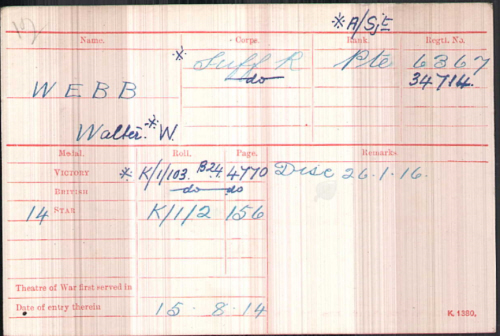 * A/Sjt
Name. Corps. Rank. Regtl. No.
* Suff R Pte 6367
do 34714.
WEBB
Walter. * W.
Medal. Roll. Page. Remarks.
VICTORY * K/1/103. B24. 4770 Disc 26.1.16.
BRITISH do do
14 STAR K/1/2 156
Theatre of War first served in
Date of entry therein 15. 8. 14
K. 1380.